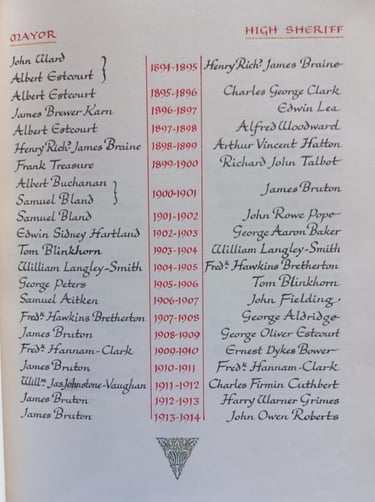 MAYOR HIGH SHERIFF
John Ward
Albert Estcourt } 1894-1895 Henry Richd James Braine
Albert Estcourt 1895-1896 Charles George Clark
James Brewer Karn 1896-1897 Edwin Lea
Albert Estcourt 1897-1898 Alfred Woodward
Henry Richd James Braine 1898-1899 Arthur Vincent Hatton
Frank Treasure 1899-1900 Richard John Talbot
Albert Buchanan
Samuel Bland } 1900-1901 James Bruton
Samuel Bland 1901-1902 John Rowe Pope
Edwin Sidney Hartland 1902-1903 George Aaron Baker
Tom Blinkhorn 1903-1904 William Langley-Smith
William Langley-Smith 1904-1905 Fredk Hawkins Bretherton
George Peters 1905-1906 Tom Blinkhorn
Samuel Aitken 1906-1907 John Fielding
Fredk Hawkins Bretherton 1907-1908 George Aldridge
James Bruton 1908-1909 George Oliver Estcourt
Fredk Hannam-Clark 1909-1910 Ernest Dykes Bower
James Bruton 1910-1911 Fredk Hannam-Clark
Willm Jas Johnstone-Vaughan 1911-1912 Charles Firmin Cuthbert
James Bruton 1912-1913 Harry Warner Grimes
James Bruton 1913-1914 John Owen Roberts